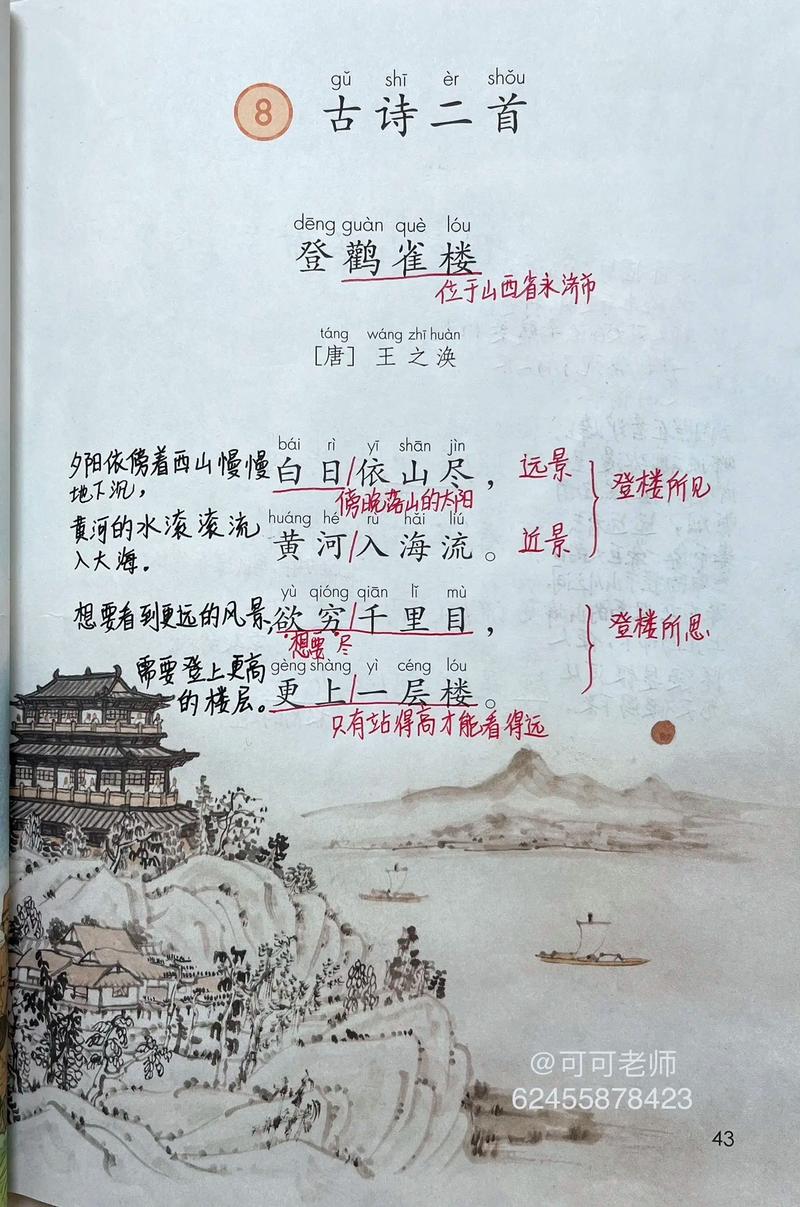 gǔ shī èr shǒu
8 古诗二首
dēng guàn què lóu
登鹳雀楼
位于山西省永济市
táng wáng zhī huàn
[唐] 王之涣
夕阳依傍着西山慢慢
地下沉，
bái rì yī shān jìn
白日/依山尽，
远景
傍晚落山的太阳
登楼所见
黄河的水滚滚流
入大海。
huáng hé rù hǎi liú
黄河/入海流。
近景
想要看到更远的风景，
yù qióng qiān lǐ mù
欲穷/千里目，
想要 尽
登楼所思
需要登上更高
的楼层。
gèng shàng yì céng lóu
更上/一层楼。
只有站得高才能看得远
@可可老师
62455878423
43